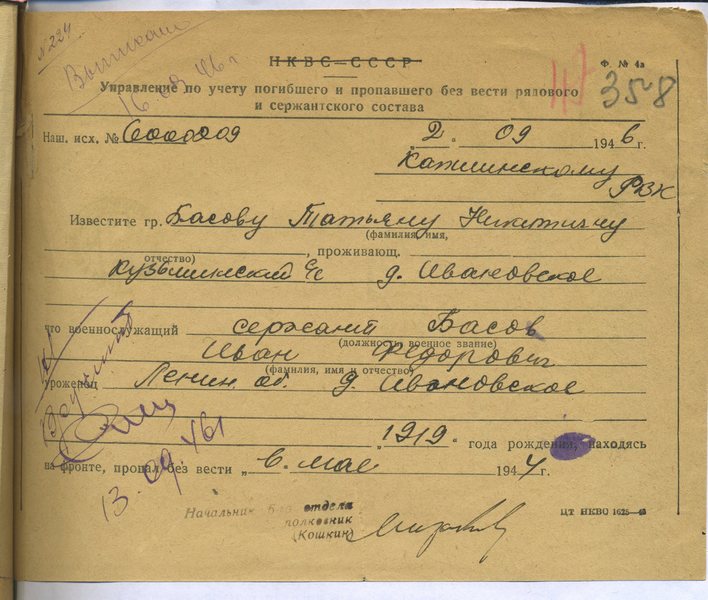 № 224
НКВС—СССР
Ф. № 4а
16 09 46 г
358
Управление по учету погибшего и пропавшего без вести рядового
и сержантского состава
Наш. исх. № 6000209 „2" 09 1946 г.
РВК
Известите гр. Басову Татьяну Никитичну
(фамилия, имя,
отчество) , проживающ.
Кузьминский с/с д. Ивановское
что военнослужащий сержант Басов
(должность, военное звание)
Иван Федорович
(фамилия, имя и отчество)
уроженец Ленин. об. д. Ивановское
„ 1919 " года рождения, находясь
на фронте, пропал без вести „ в мае 1944 г.
13.09.46
Начальник 5-го отдела
полковник
(Кошкин)
ЦТ НКВС 1625—46